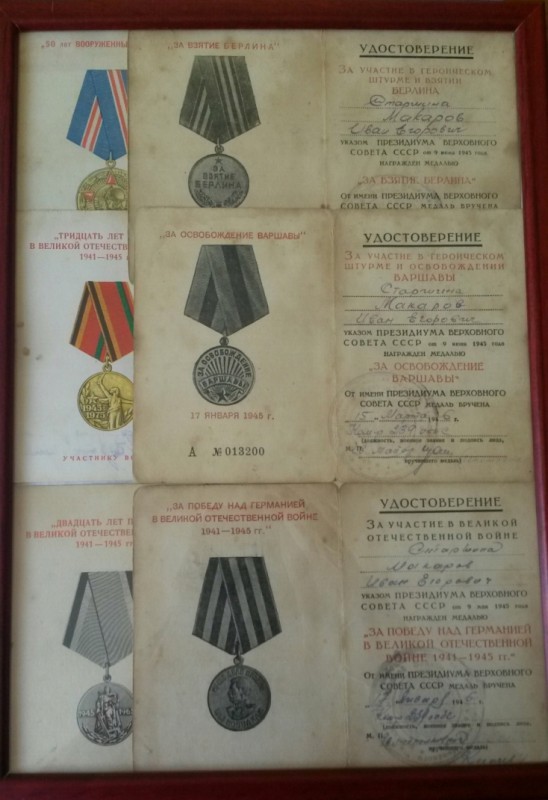 „50 лет ВООРУЖЕННЫ
„ЗА ВЗЯТИЕ БЕРЛИНА"
ЗА
ВЗЯТИЕ
БЕРЛИНА
УДОСТОВЕРЕНИЕ
ЗА УЧАСТИЕ В ГЕРОИЧЕСКОМ
ШТУРМЕ И ВЗЯТИИ
БЕРЛИНА
Старшина
Макаров
Иван Егорович
УКАЗОМ ПРЕЗИДИУМА ВЕРХОВНОГО
СОВЕТА СССР от 9 июня 1945 года
НАГРАЖДЕН МЕДАЛЬЮ
„ЗА ВЗЯТИЕ БЕРЛИНА"
От имени ПРЕЗИДИУМА ВЕРХОВНОГО
СОВЕТА СССР МЕДАЛЬ ВРУЧЕНА
„ТРИДЦАТЬ ЛЕТ
В ВЕЛИКОЙ ОТЕЧЕСТВЕ
1941—1945 г
1945
1975
УЧАСТНИКУ ВО
„ЗА ОСВОБОЖДЕНИЕ ВАРШАВЫ"
ЗА ОСВОБОЖДЕНИЕ
ВАРШАВЫ
17 ЯНВАРЯ 1945 г.
А №013200
УДОСТОВЕРЕНИЕ
ЗА УЧАСТИЕ В ГЕРОИЧЕСКОМ
ШТУРМЕ И ОСВОБОЖДЕНИИ
ВАРШАВЫ
Старшина
Макаров
Иван Егорович
УКАЗОМ ПРЕЗИДИУМА ВЕРХОВНОГО
СОВЕТА СССР от 9 июня 1945 года
НАГРАЖДЕН МЕДАЛЬЮ
„ЗА ОСВОБОЖДЕНИЕ
ВАРШАВЫ"
От имени ПРЕЗИДИУМА ВЕРХОВНОГО
СОВЕТА СССР МЕДАЛЬ ВРУЧЕНА
15 Марта 1946 г.
(должность, военное звание и подпись лица,
М. П. Майор
вручившего медаль)
„ДВАДЦАТЬ ЛЕТ П
В ВЕЛИКОЙ ОТЕЧЕСТВЕ
1941—1945 гг
1945 1965
„ЗА ПОБЕДУ НАД ГЕРМАНИЕЙ
В ВЕЛИКОЙ ОТЕЧЕСТВЕННОЙ ВОЙНЕ
1941—1945 гг."
УДОСТОВЕРЕНИЕ
ЗА УЧАСТИЕ В ВЕЛИКОЙ
ОТЕЧЕСТВЕННОЙ ВОЙНЕ
Старшина
Макаров
Иван Егорович
УКАЗОМ ПРЕЗИДИУМА ВЕРХОВНОГО
СОВЕТА СССР от 9 мая 1945 года
НАГРАЖДЕН МЕДАЛЬЮ
„ЗА ПОБЕДУ НАД ГЕРМАНИЕЙ
В ВЕЛИКОЙ ОТЕЧЕСТВЕННОЙ
ВОЙНЕ 1941—1945 гг."
От имени ПРЕЗИДИУМА ВЕРХОВНОГО
СОВЕТА СССР МЕДАЛЬ ВРУЧЕНА
(должность, военное звание и подпись лица,
М. П.
вручившего медаль)